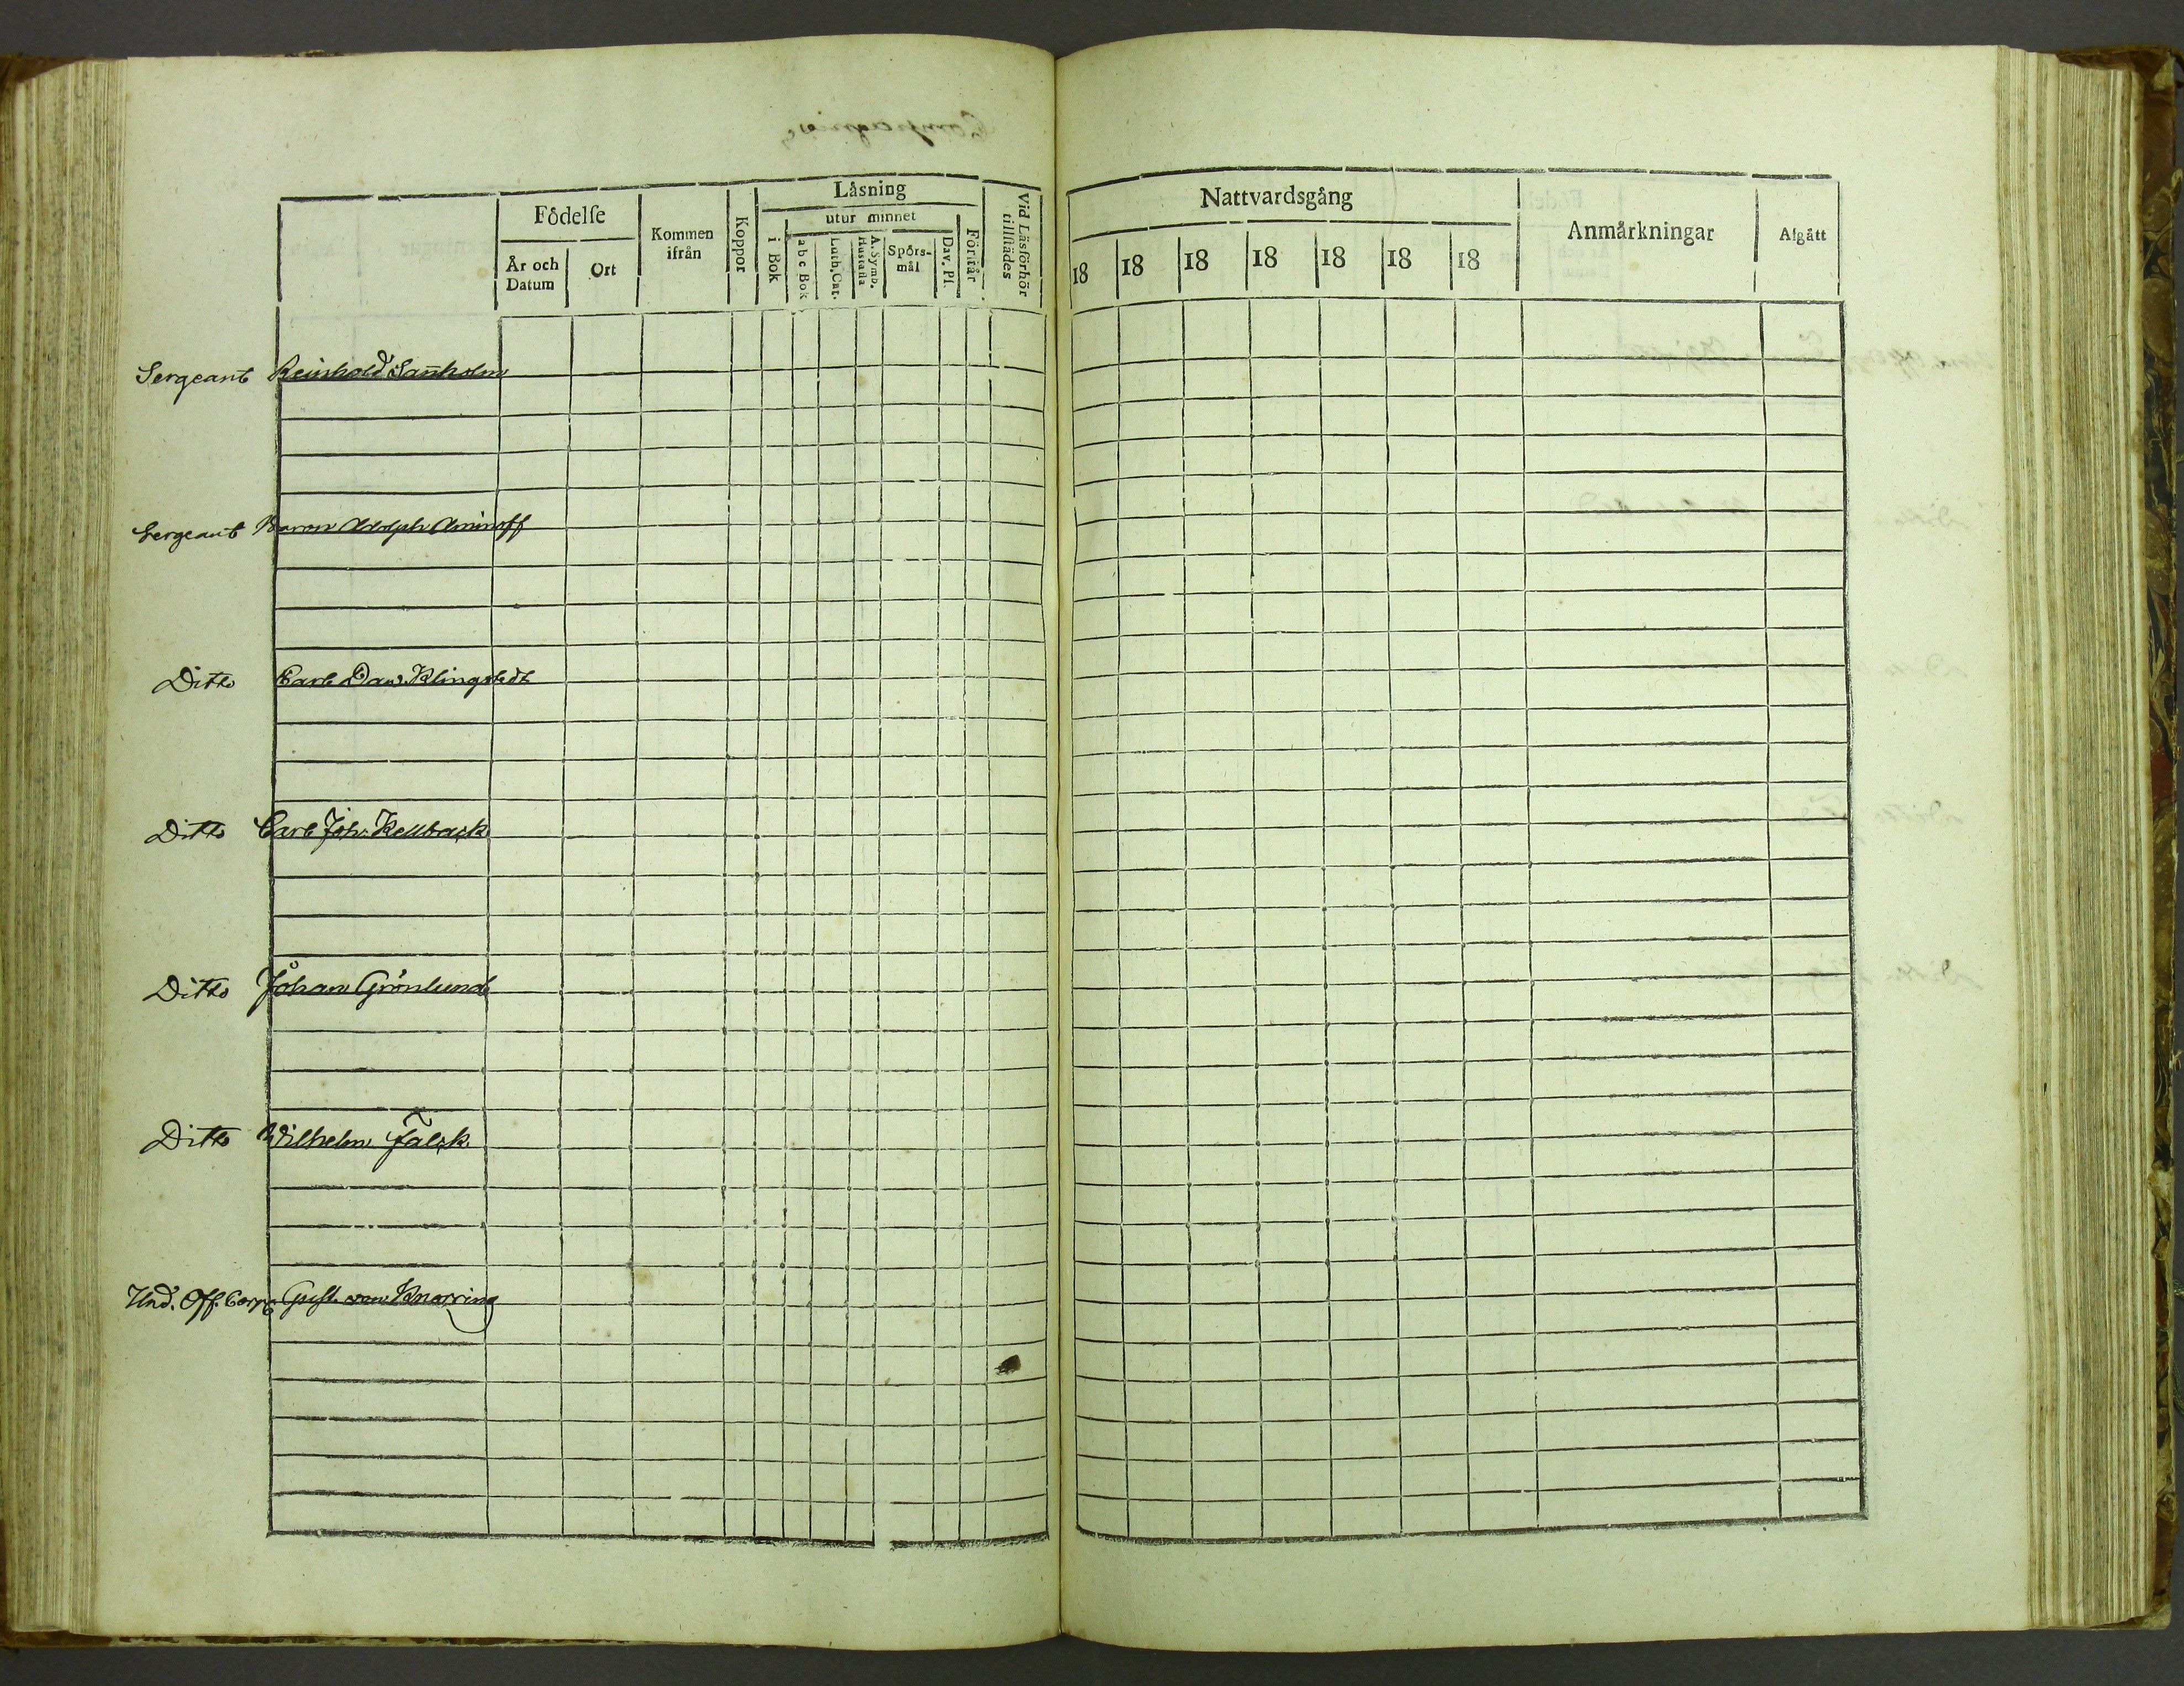 Läsning
Födelse
Kommen ifrån
Koppor
utur minnet
Förstår
Vid Läsförhör tillstädes
År och Datum
Ort
i Bok
abc Bok
Luth. Cat.
A. Symb. Hustafla
Spörs-mål
Dav. Ps.
Nattvardsgång
Anmärkningar
Afgått
18 18 18 18 18 18 18
Sergeant Reinhold
Sergeant Baron Adolph Aminoff
Ditto Carl Dav. Klingstedt
Ditto Carl Joh. Kellback
Ditto Johan Grönlund
Ditto Wilhelm Falck
Und. Off. Corps Gust. von Knorring